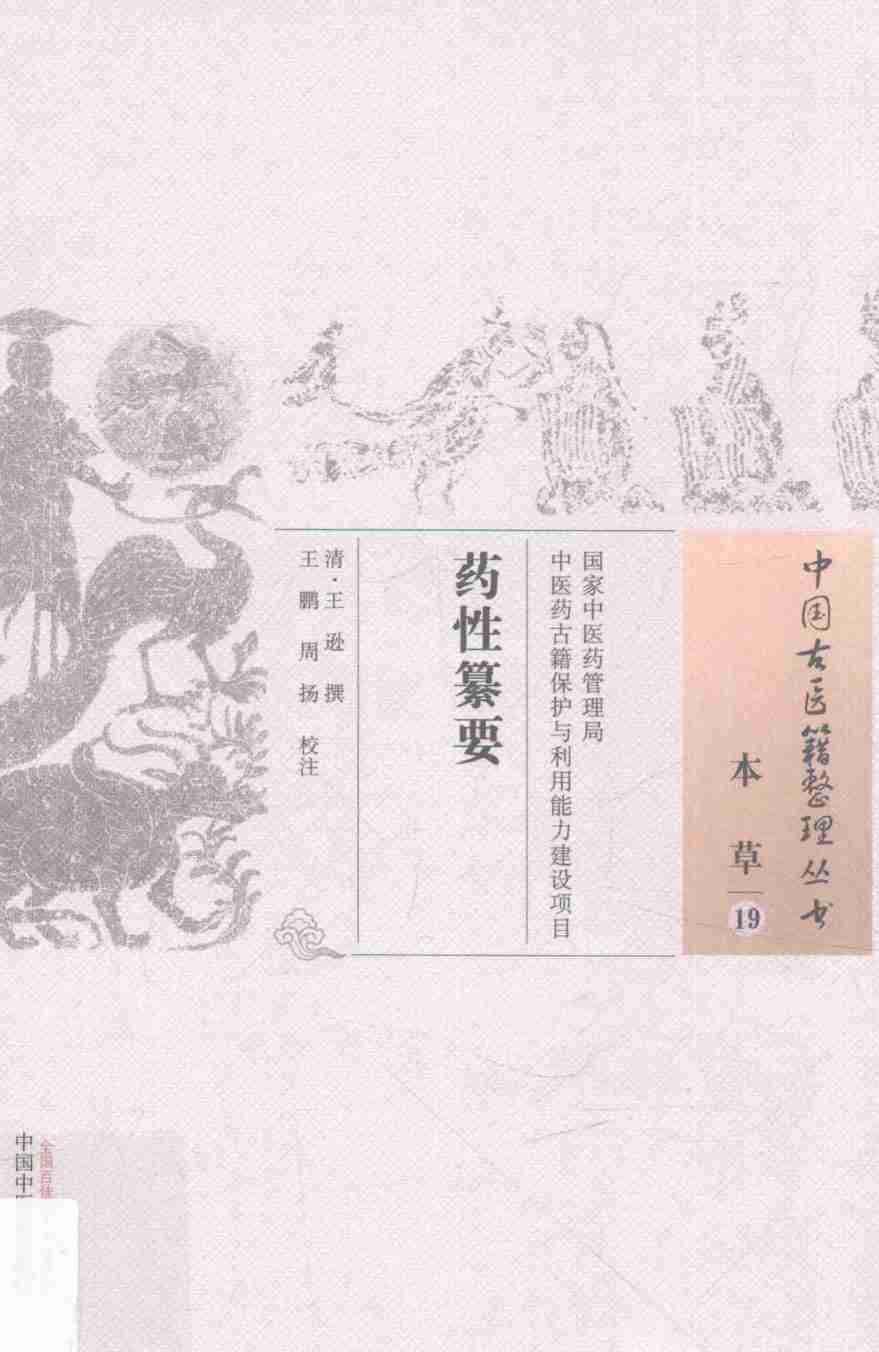 中国古医籍整理丛书
本草
19
国家中医药管理局
中医药古籍保护与利用能力建设项目
药性纂要
清·王逊 撰
王鹏 周扬 校注
全国百佳
中国中医